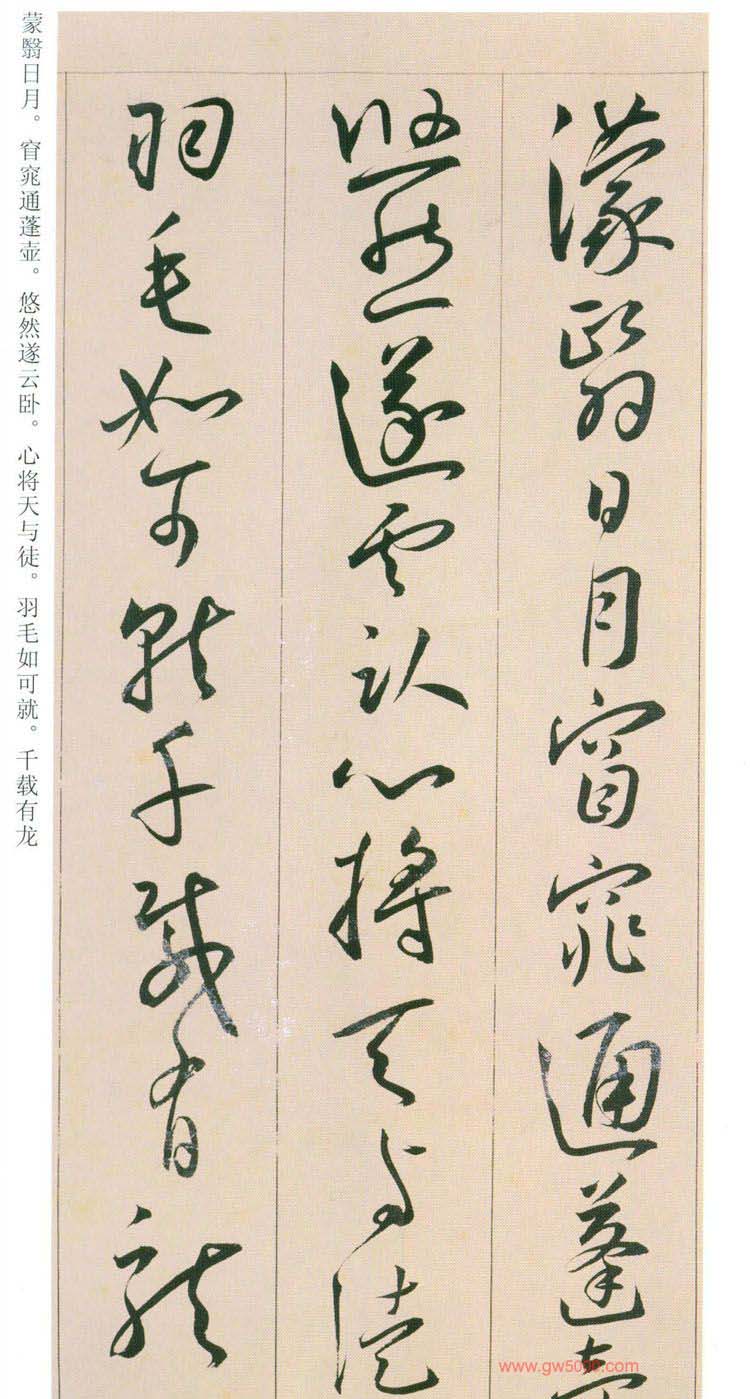 濛翳日月窅窕通蓬壺
悠然遂雲臥心將天与徒
羽毛如可就千載有龍
蒙翳日月。窅窕通蓬壶。悠然遂云卧。心将天与徒。羽毛如可就。千载有龙
www.gw5000.com